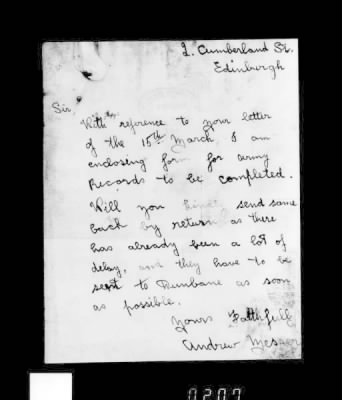 2. Cumberland St.
Edinburgh
Sir,
With reference to your letter
of the 15th March, I am
enclosing form for army
Records to be completed.
Will you kindly send same
back by return, as there
has already been a lot of
delay, and they have to be
sent to Dunbane as soon
as possible.
Yours Faithfull
Andrew Messer
0207